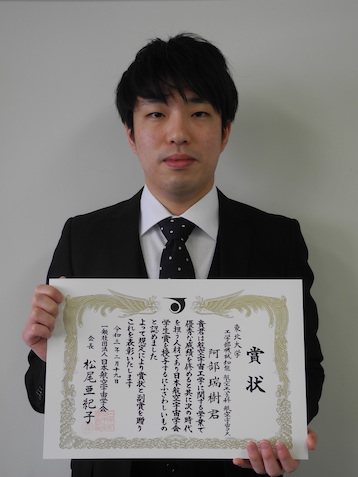 賞状
東北大学
工学部機械知能・航空工学科 航空宇宙コース
阿部瑞樹君
貴君は航空宇宙工学に関する学業で
優秀な成績を修めると共に次の時代
を担う人材であり日本航空宇宙学会
学生賞を授与するにふさわしいもの
と認めました
よって規定により賞状と副賞を贈り
これを表彰いたします
令和三年二月十九日
一般社団法人日本航空宇宙学会
会長 松尾亜紀子